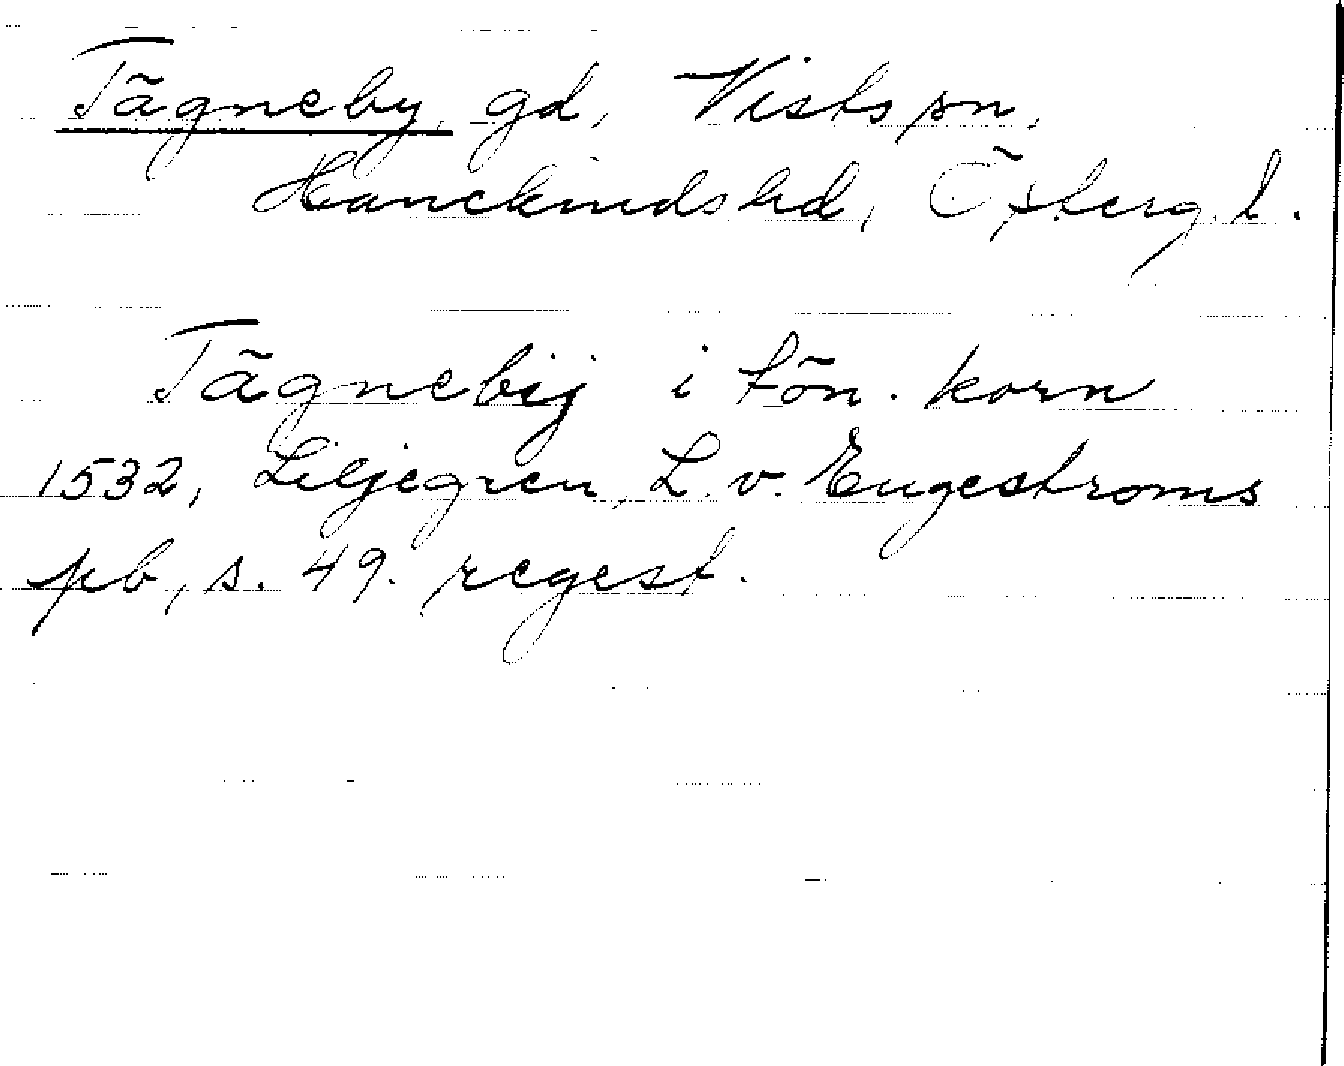 Tägneby, gd, Vists sn,
Hanekinds hd, Österg. l.
Tägnebÿ i tön. korn
1532, Liljegren, L. v. Engeströms
pb, s. 49. regest.